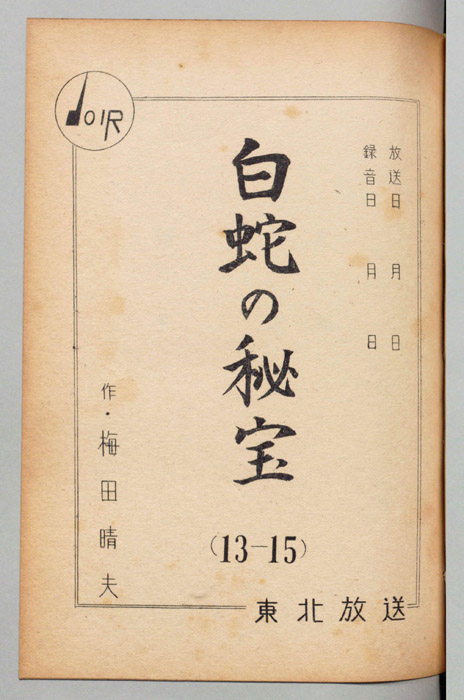 JOIR
放送日　月　日
録音日　月　日
白蛇の秘宝
(13-15)
作・梅田晴夫
東北放送